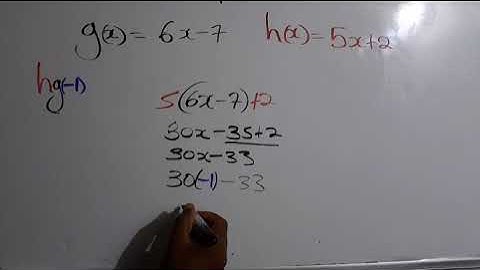 g(x) = 6x-7 h(x) = 5x+2
hg(-1)
5(6x-7)+2
30x-35+2
30x-33
30(-1)-33